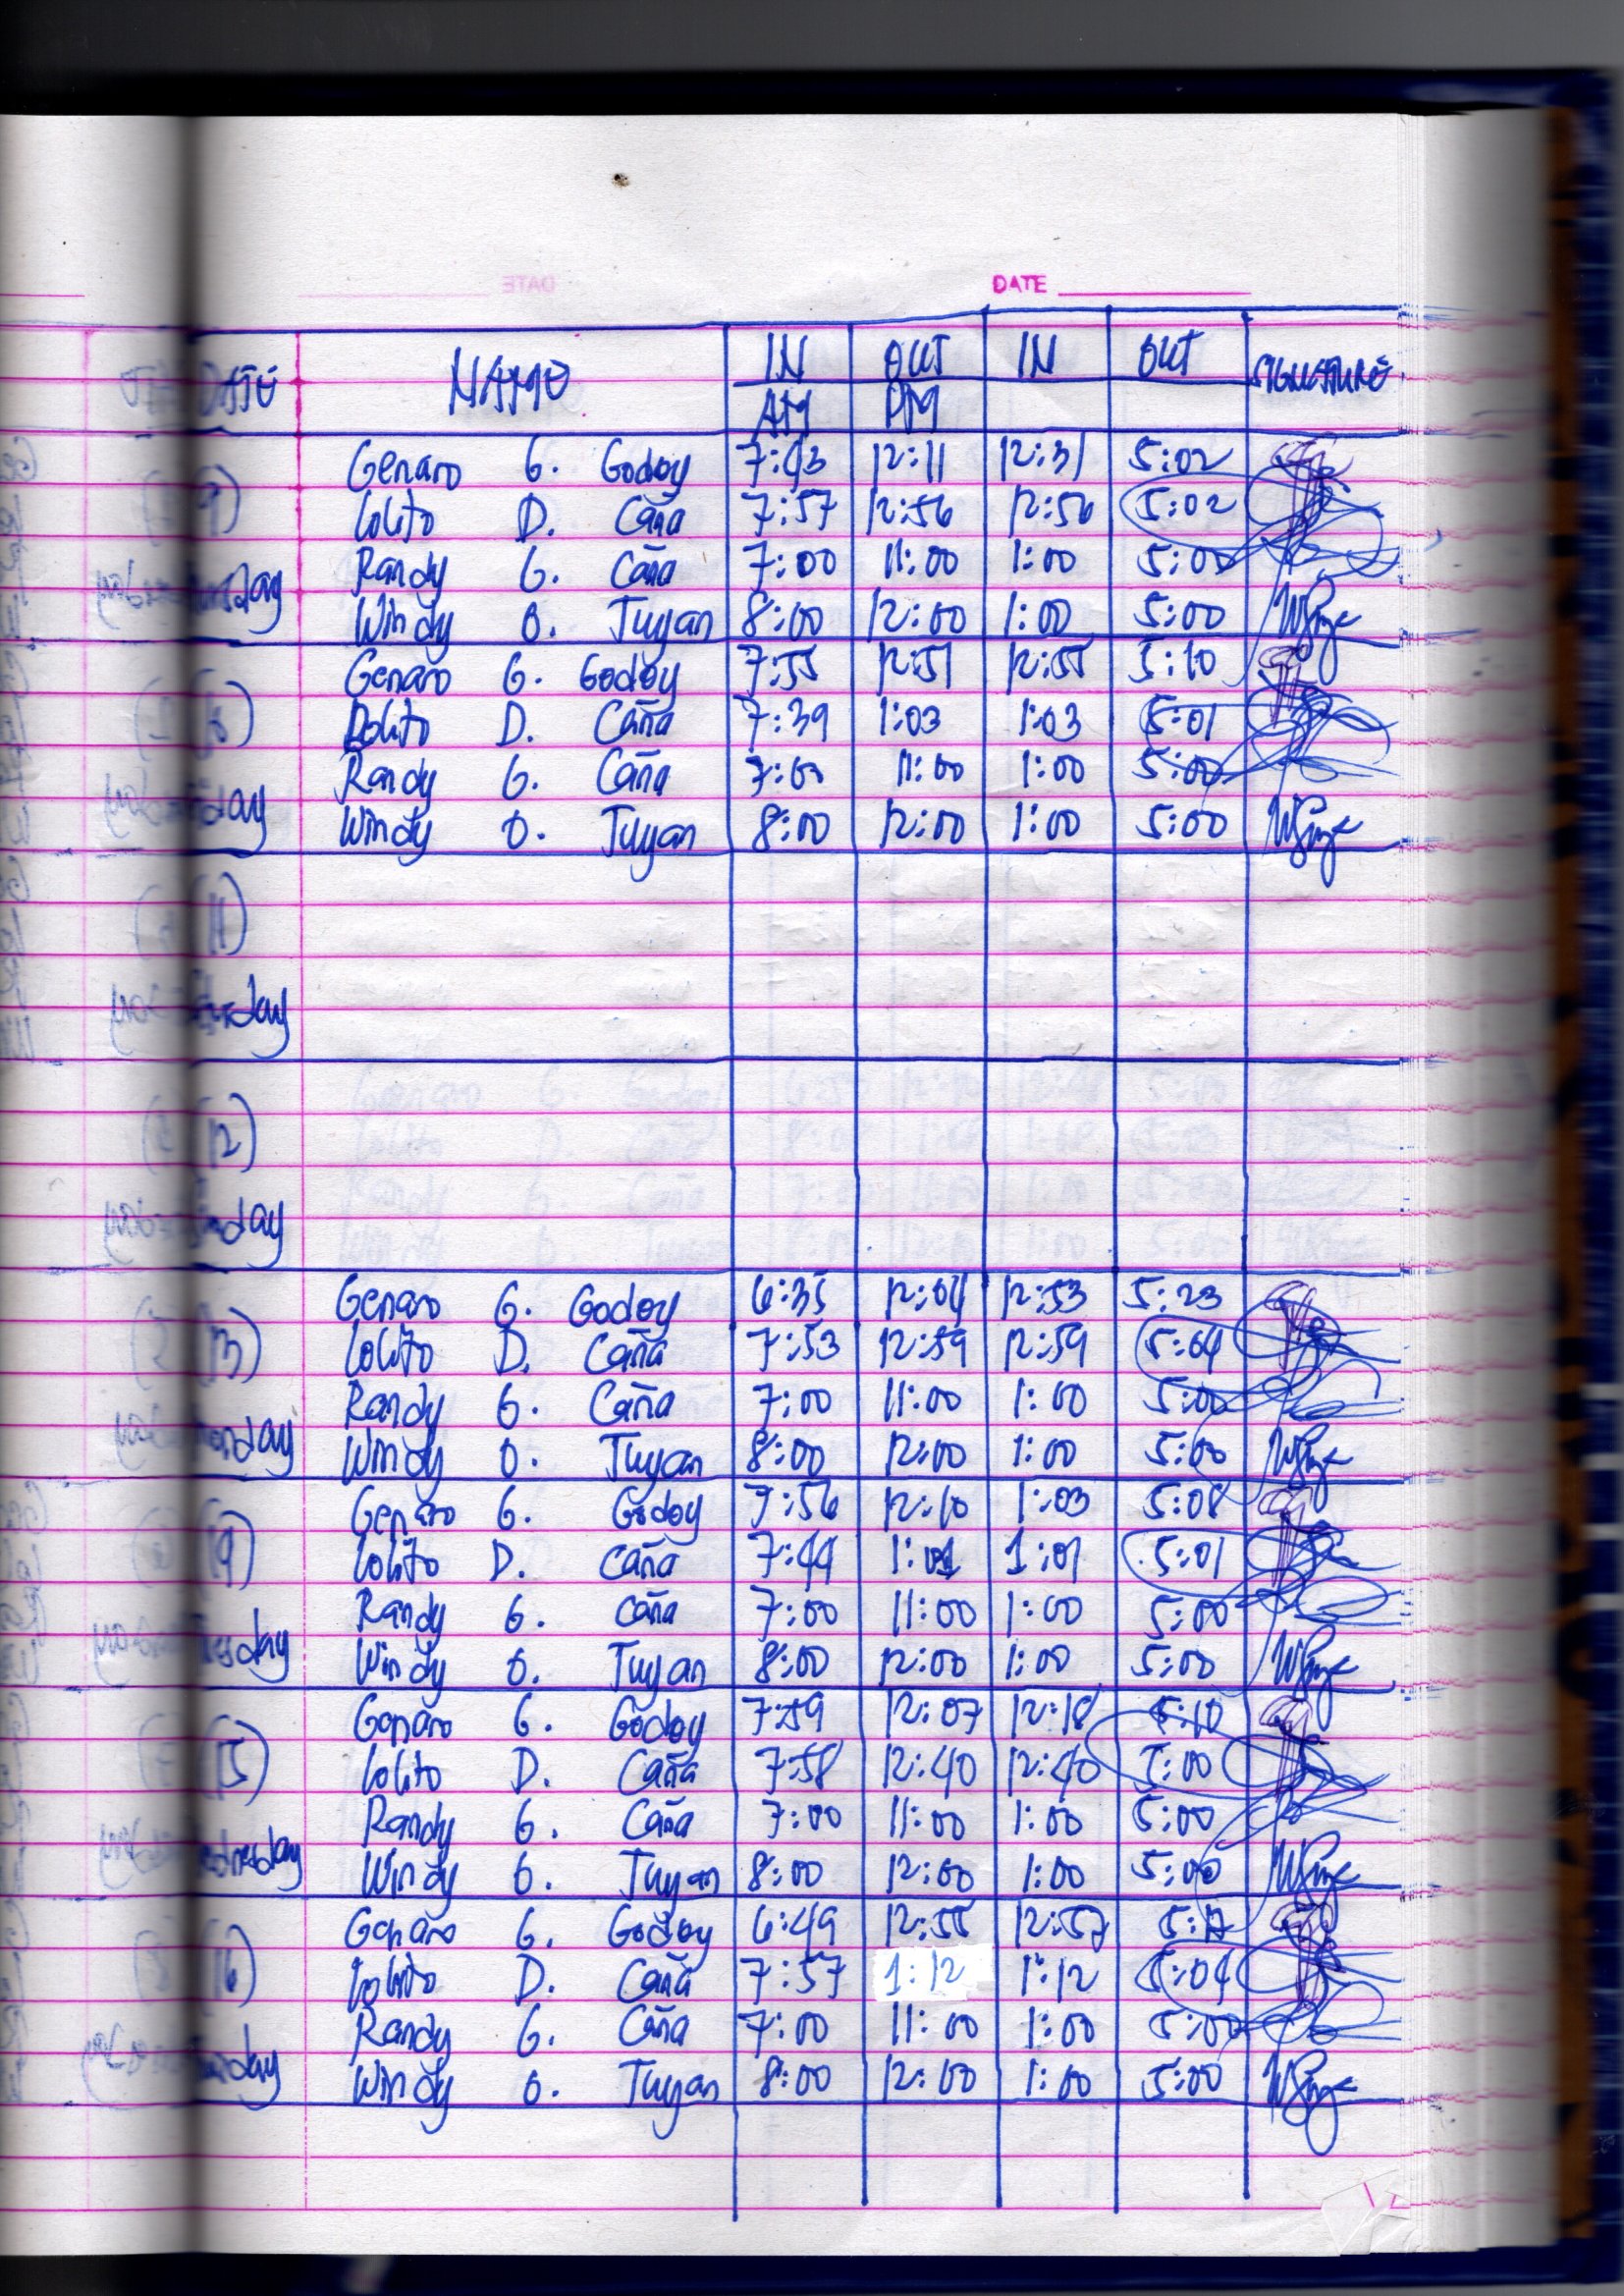 DATE
NAME IN OUT IN OUT SIGNATURE
AM PM
Genaro G. Godoy 7:43 12:11 12:31 5:02
Lolito D. Caña 7:57 12:56 12:56 5:02
Randy G. Caña 7:00 11:00 1:00 5:00
Windy O. Tuyan 8:00 12:00 1:00 5:00
Genaro G. Godoy 7:55 12:51 12:55 5:10
Lolito D. Caña 7:39 1:03 1:03 5:01
Randy G. Caña 7:00 11:00 1:00 5:00
Windy O. Tuyan 8:00 12:00 1:00 5:00
11)
12)
Genaro G. Godoy 6:35 12:04 12:53 5:23
13) Lolito D. Caña 7:53 12:59 12:59 5:04
Randy G. Caña 7:00 11:00 1:00 5:00
Windy O. Tuyan 8:00 12:00 1:00 5:00
Genaro G. Godoy 7:56 12:10 1:03 5:08
Lolito D. Caña 7:44 1:01 1:01 5:01
Randy G. Caña 7:00 11:00 1:00 5:00
Windy O. Tuyan 8:00 12:00 1:00 5:00
Genaro G. Godoy 7:59 12:07 12:18 5:10
15) Lolito D. Caña 7:58 12:40 12:40 5:00
Randy G. Caña 7:00 11:00 1:00 5:00
Windy O. Tuyan 8:00 12:00 1:00 5:00
Genaro G. Godoy 6:49 12:55 12:57 5:17
16) Lolito D. Caña 7:57 1:12 1:12 5:04
Randy G. Caña 7:00 11:00 1:00 5:00
Windy O. Tuyan 8:00 12:00 1:00 5:00